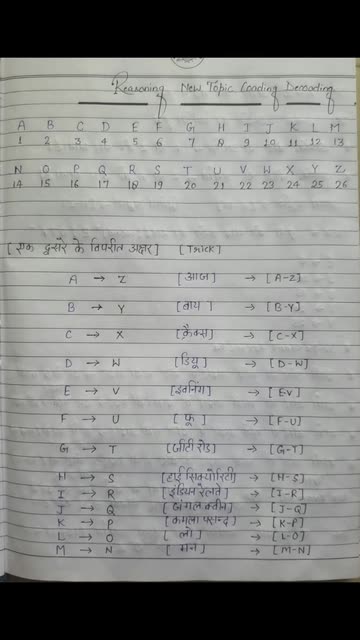 Reasoning New Topic Coading Decoading
A B C D E F G H I J K L M
1 2 3 4 5 6 7 8 9 10 11 12 13
N O P Q R S T U V W X Y Z
14 15 16 17 18 19 20 21 22 23 24 25 26
[एक दूसरे के विपरीत अक्षर] [Trick]
A → Z [आज] → [A-Z]
B → Y [बाय] → [B-Y]
C → X [क्रैक्स] → [C-X]
D → W [डियू] → [D-W]
E → V [इवनिंग] → [E-V]
F → U [फू] → [F-U]
G → T [जीटी रोड] → [G-T]
H → S [हाई सिक्योरिटी] → [H-S]
I → R [इंडियन रेलवे] → [I-R]
J → Q [जंगल क्वीन] → [J-Q]
K → P [कमला पसन्द] → [K-P]
L → O [लो] → [L-O]
M → N [मन] → [M-N]